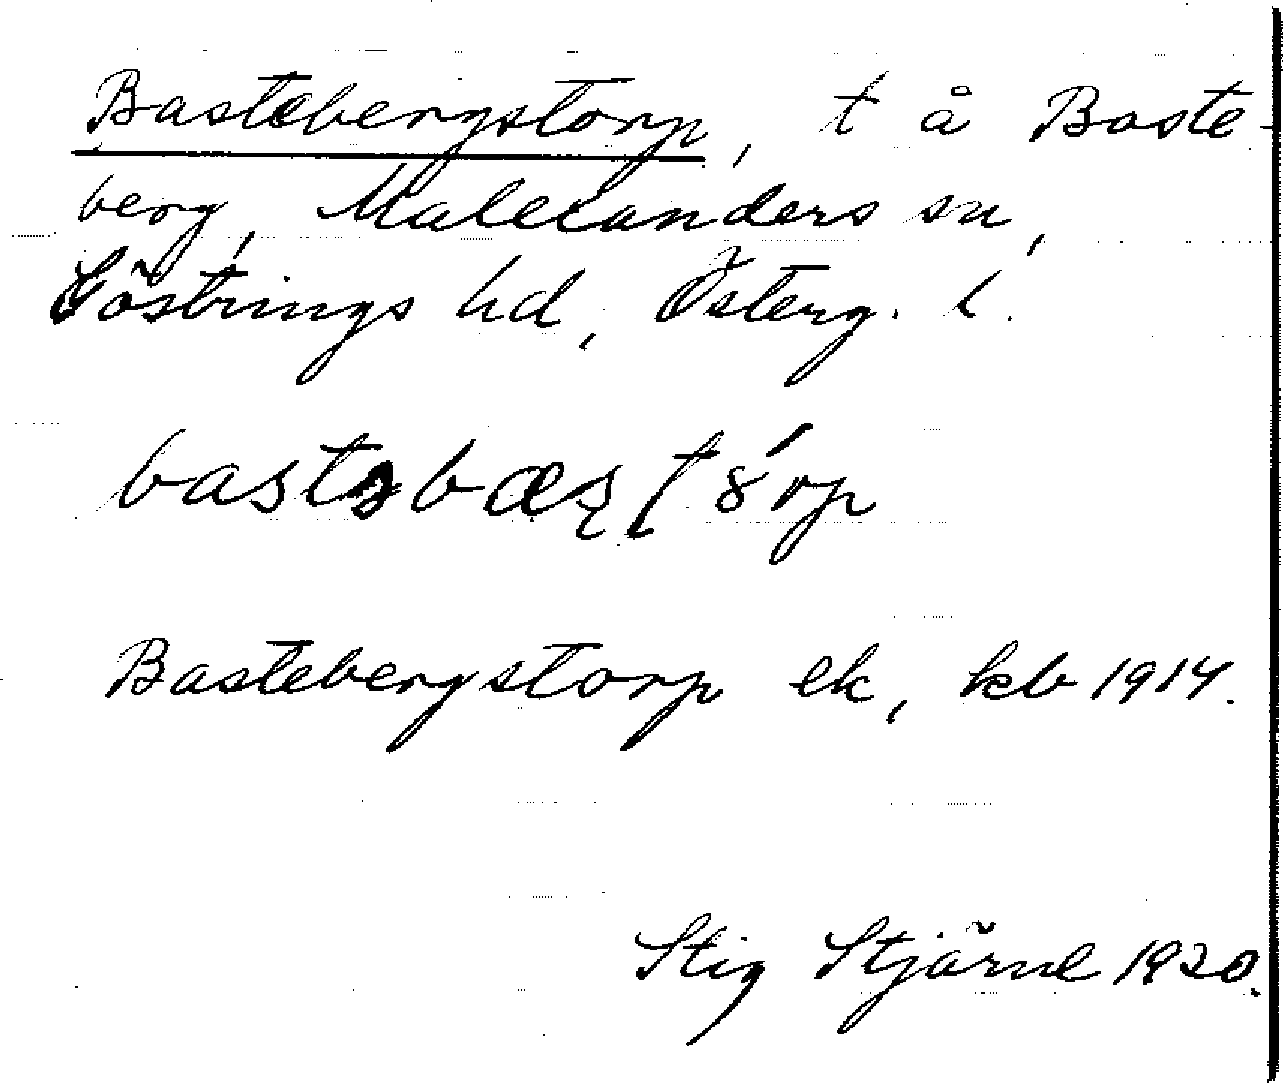 Bastebergstorp, t å Baste-
berg, Malexanders sn,
Göstrings hd, Österg. l.
bastəbæʂʈ8́rp
Bastebergstorp ek, kb 1914.
Stig Stjärne 1920.